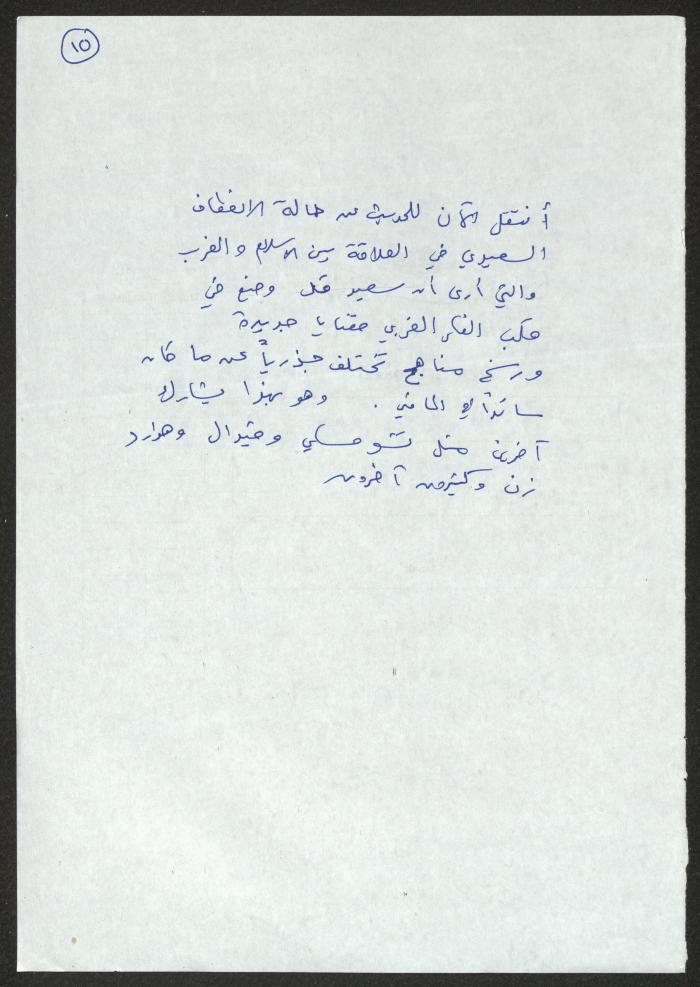 ١٥
أنتقل الآن للحديث عن حالة الانعطاف
السعيدي في العلاقة بين الاسلام والغرب
والتي أرى أن سعيد قد وضع في
قلب الفكر الغربي قضايا جديدة
ورسخ مناهج تختلف جذرياً عن ما كان
سائداً في الماضي . وهو بهذا يشارك
آخرين مثل تشومسكي وفيدال وهوارد
زن وكثيرون آخرون